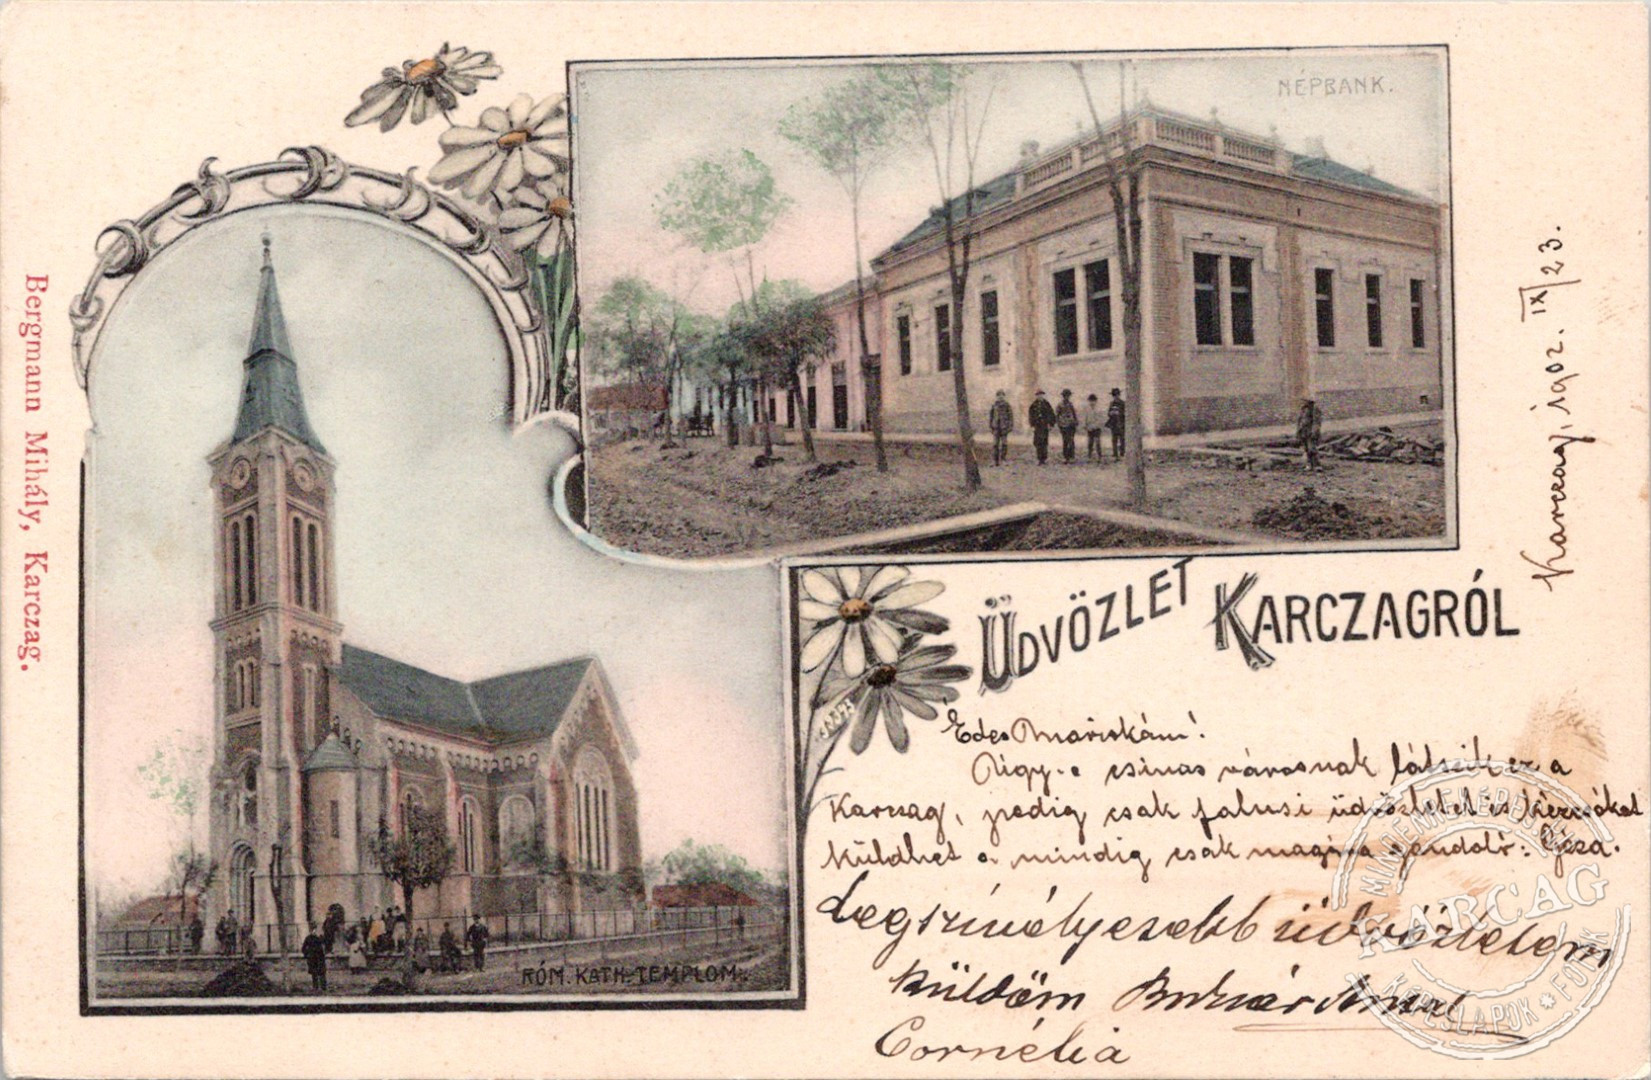 NÉPBANK.
Bergmann Mihály, Karczag.
RÓM. KATH. TEMPLOM.
ÜDVÖZLET KARCZAGRÓL
Karczag, 902. IX/23.
Édes Mariskám!
Úgy-e csinos városnak látszik ez a
Karczag, pedig csak falusi üdvözletet és kézcsókot
küldhet a mindig csak magára gondoló: Géza.
Legszívélyesebb üdvözletem
küldöm
Cornélia
MINDENNEKÉPES
KARCAG
KÉPESLAPOK * FOTÓK